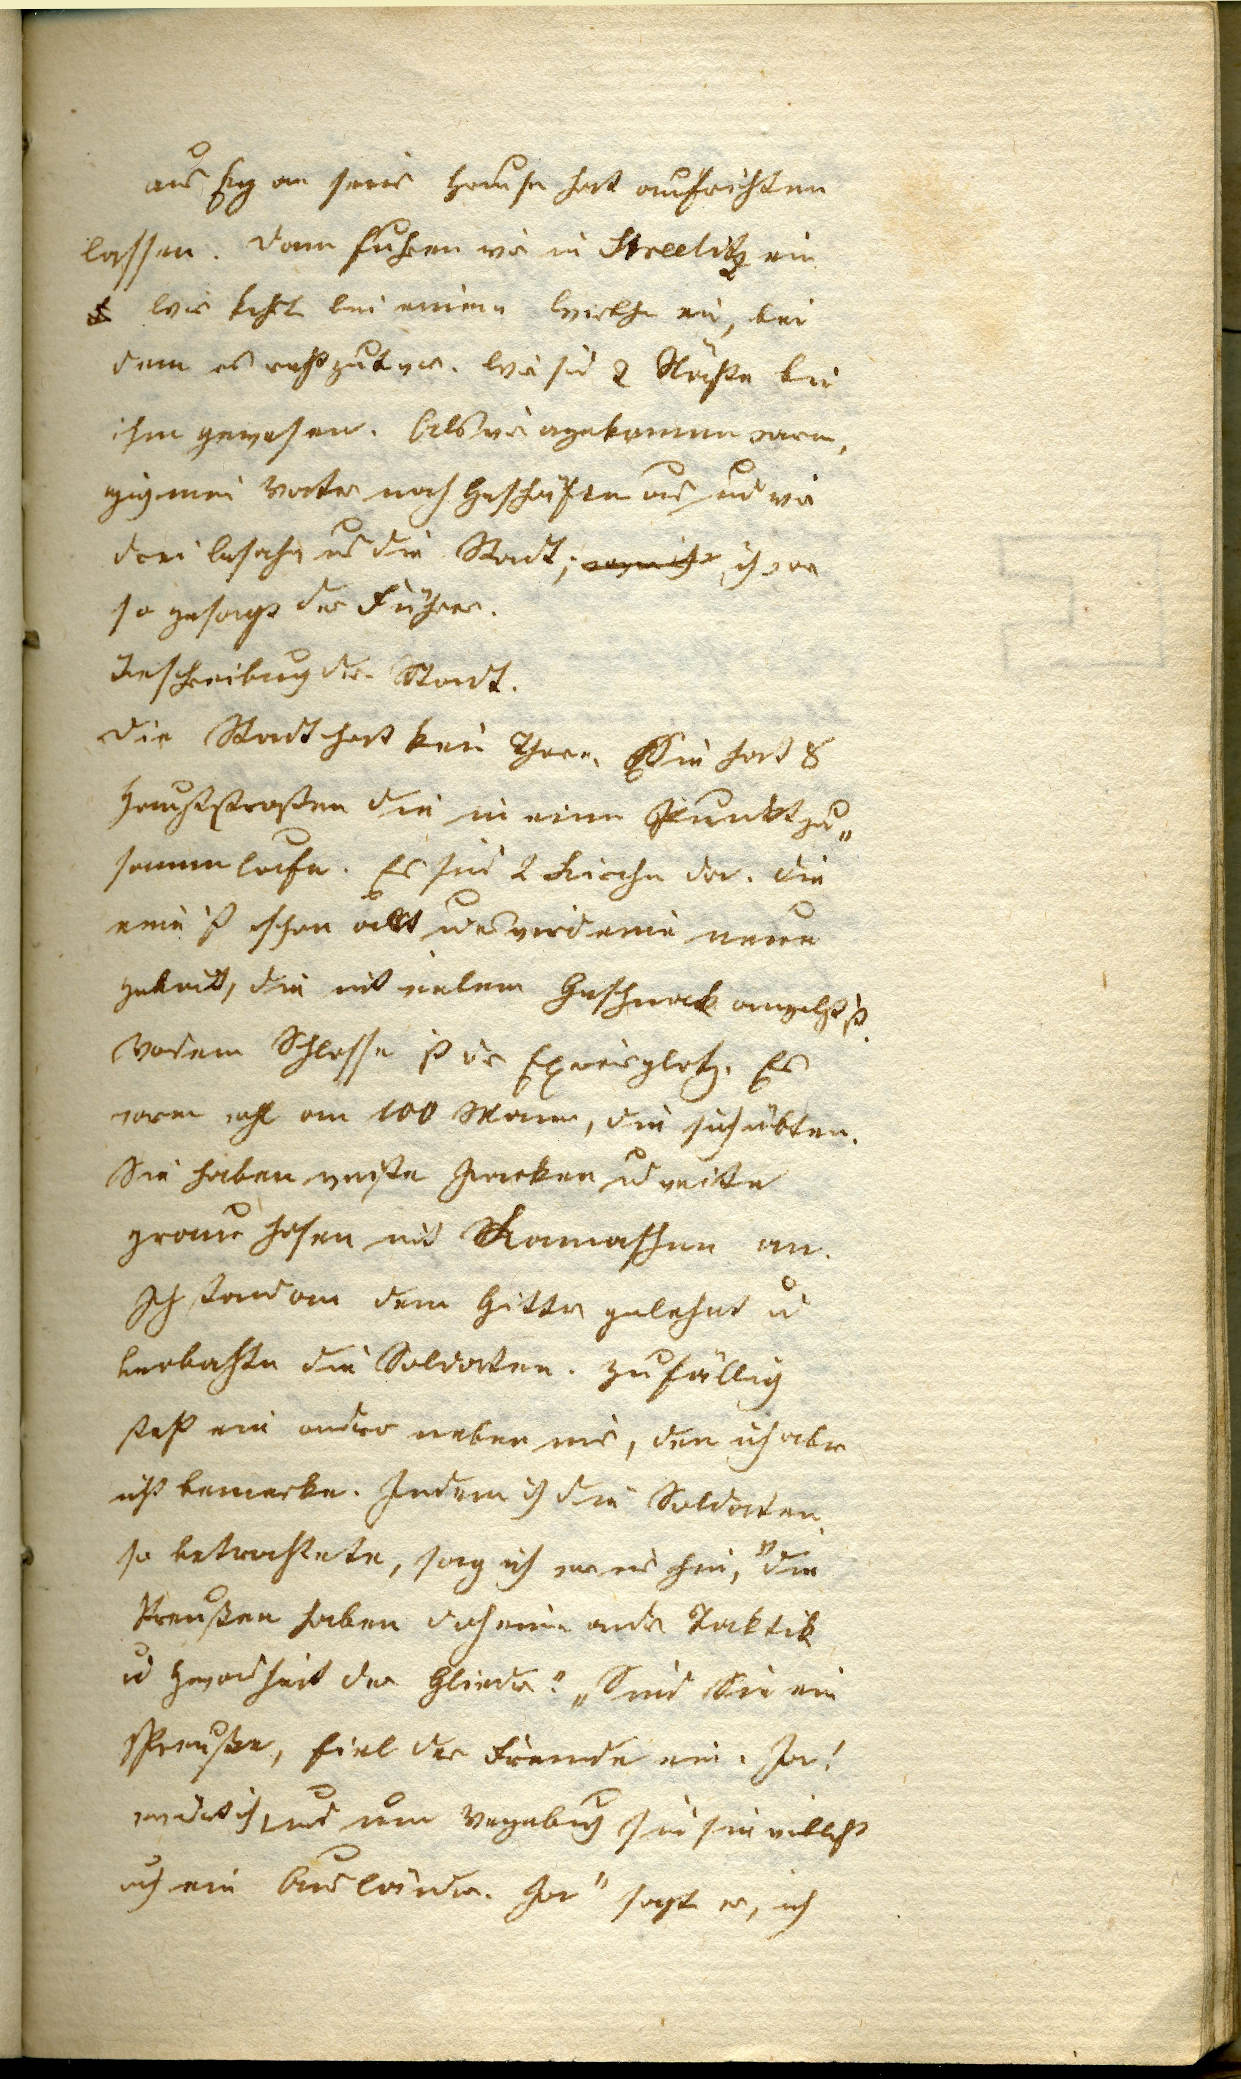 aus Erz an seine Hause hat aufrichten
lassen. Dann fuhren wir in Streelitz ein
Wir kehrt bei einem Wirthe ein, bei
dem es recht gut war. Wir sind 2 Nächte bei
ihm gewesen. Als wir angekommen waren,
ging mein Vater nach Geschäften aus und wir
drei besahen uns die Stadt; ich war
so gesagt der Führer.
Beschreibung der Stadt.
Die Stadt hat kein Thore. Sie hat 8
Hauptstraßen die in einen Punckt zu„
sammen laufen. Es sind 2 Kirchen da. Die
eine ist schon alt und es wird eine neue
gebaut, die mit vielem Geschmack angelegt ist.
Vor dem Schlosse ist der Exercierplatz. Es
waren wohl an 100 Mann, die sich übten.
Sie haben weiße Jacken und weite
graue Hosen mit Kamaschen an.
Ich stand an dem Gitter gelehnt u
beobachte die Soldaten. Zufällig
steht ein andrer neben mir, den ich aber
nicht bemerke. Indem ich die Soldaten
so betrachtete, sag ich vor mir hin, „die
Preußen haben doch eine andre Taktik
u Gewandheit der Glieder." „Sind Sie ein
Preuße, fiel der Fremde ein. Ja!
erwidert ich, und um Vergebung sind sie vielleicht
auch ein Ausländer. Ja" sagt er, ich